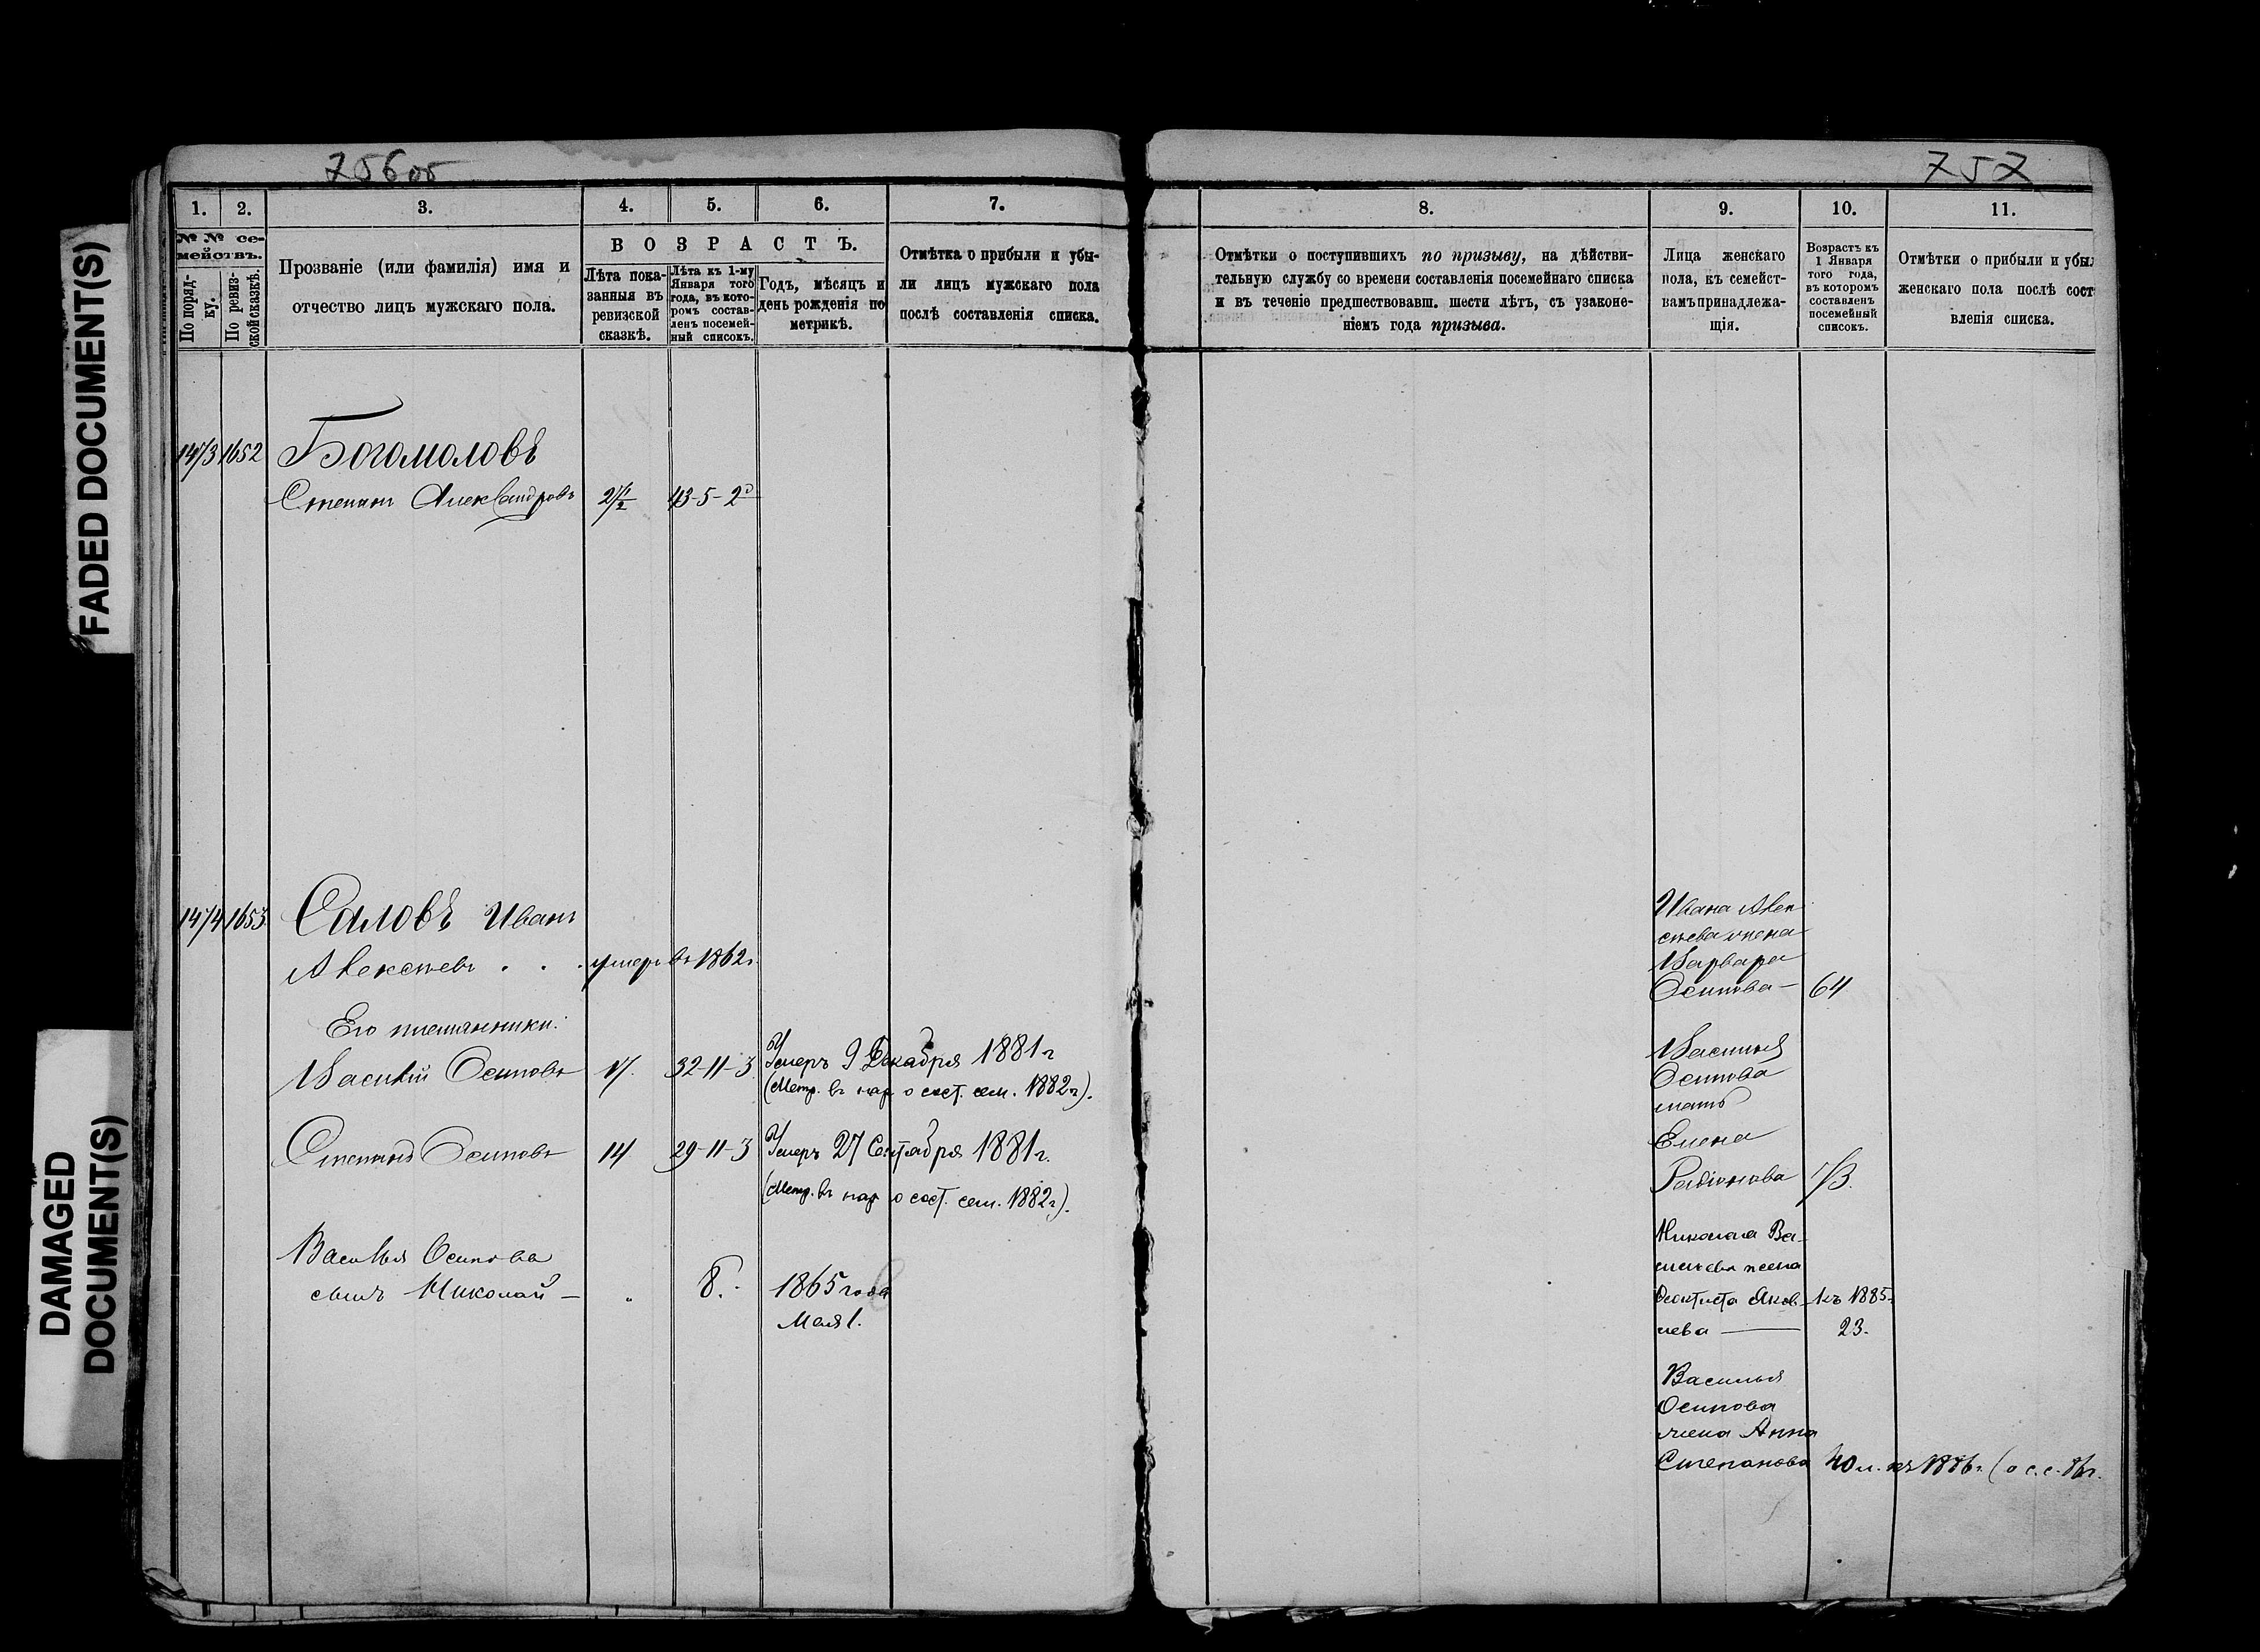 756об
757
FADED DOCUMENT(S)
DAMAGED
DOCUMENT(S)
1.
2.
3.
4.
5.
6.
7.
№ № се-
мействъ.
По поряд-
ку.
По ревиз-
ской сказкѣ.
Прозваніе (или фамилія) имя и
отчество лицъ мужскаго пола.
ВОЗРАСТЪ.
Лѣта пока-
занныя въ
ревизской
сказкѣ.
Лѣта къ 1-му
Января того
года, въ кото-
ромъ состав-
ленъ посемей-
ный списокъ.
Годъ, мѣсяцъ и
день рожденія по
метрикѣ.
Отмѣтка о прибыли и убы-
ли лицъ мужскаго пола
послѣ составленія списка.
1473 1652 Богомоловъ
Степанъ Александровъ 27 1/2 43-5-2
1474 1653 Саловъ Иванъ
Алексѣевъ . . . умеръ въ 1862 г.
Его племянники:
Василій Осиповъ 17. 32-11-3 Умеръ 9 Декабря 1881 г
(Метр. въ нар о сост. сем. 1882 г).
Степанъ Осиповъ 14 29-11-3 Умеръ 27 Сентября 1881 г.
(Метр. въ нар о сост. сем. 1882 г).
Василья Осипова
сынъ Николай — " 8. 1865 года
Мая 1.
8.
9.
10.
11.
Отмѣтки о поступившихъ по призыву, на дѣйстви-
тельную службу со времени составленія посемейнаго списка
и въ теченіе предшествовавш. шести лѣтъ, съ узаконе-
ніемъ года призыва.
Лица женскаго
пола, къ семейст-
вамъ принадлежа-
щія.
Возрастъ къ
1 Января
того года,
въ которомъ
составленъ
посемейный
списокъ.
Отмѣтки о прибыли и убыл
женскаго пола послѣ сост
вленія списка.
Ивана Алек
сѣева жена
Варвара
Осипова — 64
Василья
Осипова
мать
Елена
Радіонова 73.
Николая Ва-
сильева жена
Феоктиста Яков- къ 1885 г.
лева — 23.
Василья
Осипова
жена Анна
Степанова 40 л. къ 1886 г. (о с. с. 86 г.